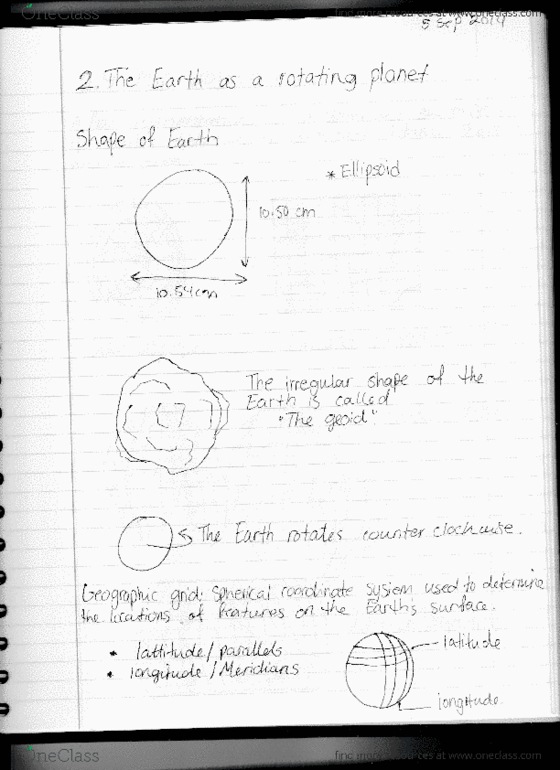 OneClass
find more resources at www.oneclass.com
5 Sep 2014
2. The Earth as a rotating planet
Shape of Earth
* Ellipsoid
10.50 cm
10.54cm
The irregular shape of the
Earth is called
"The geoid"
The Earth rotates counter clockwise.
Geographic grid: spherical coordinate system used to determine
the locations of features on the Earth's surface.
• lattitude / parallels
• longitude / Meridians
latitude
longitude
OneClass
find more resources at www.oneclass.com